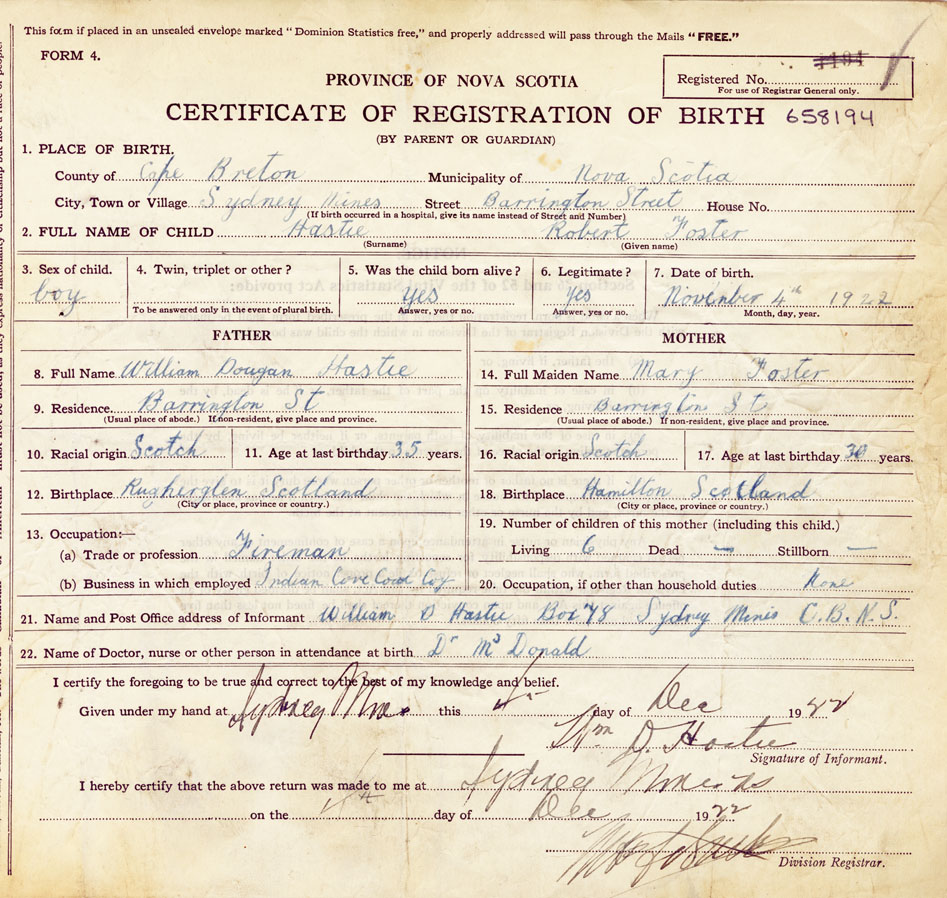 This form if placed in an unsealed envelope marked "Dominion Statistics free," and properly addressed will pass through the Mails "FREE."
FORM 4.
Registered No.
For use of Registrar General only.
PROVINCE OF NOVA SCOTIA
CERTIFICATE OF REGISTRATION OF BIRTH 658194
(BY PARENT OR GUARDIAN)
1. PLACE OF BIRTH.
County of Cape Breton Municipality of Nova Scotia
City, Town or Village Sydney Mines Street Barrington Street House No.
(If birth occurred in a hospital, give its name instead of Street and Number)
2. FULL NAME OF CHILD Hastie Robert Foster
(Surname) (Given name)
3. Sex of child. 4. Twin, triplet or other? 5. Was the child born alive? 6. Legitimate? 7. Date of birth.
boy yes yes November 4th 1922
To be answered only in the event of plural birth. Answer, yes or no. Answer, yes or no. Month, day, year.
FATHER MOTHER
8. Full Name William Dougan Hastie 14. Full Maiden Name Mary Foster
9. Residence. Barrington St 15. Residence Barrington St
(Usual place of abode.) If non-resident, give place and province. (Usual place of abode.) If non-resident, give place and province.
10. Racial origin Scotch 11. Age at last birthday 35 years. 16. Racial origin Scotch 17. Age at last birthday 30 years.
12. Birthplace Rugherglen Scotland 18. Birthplace Hamilton Scotland
(City or place, province or country.) (City or place, province or country.)
13. Occupation:— 19. Number of children of this mother (including this child.)
(a) Trade or profession Fireman Living 6 Dead — Stillborn —
(b) Business in which employed Indian Cove Coal Coy 20. Occupation, if other than household duties None
21. Name and Post Office address of Informant William D Hastie Box 78 Sydney Mines C.B.N.S.
22. Name of Doctor, nurse or other person in attendance at birth Dr McDonald
I certify the foregoing to be true and correct to the best of my knowledge and belief.
Given under my hand at Sydney Mines this day of Dec 1922
Wm D. Hastie
Signature of Informant.
I hereby certify that the above return was made to me at Sydney Mines
on the day of Dec 1922
Division Registrar.